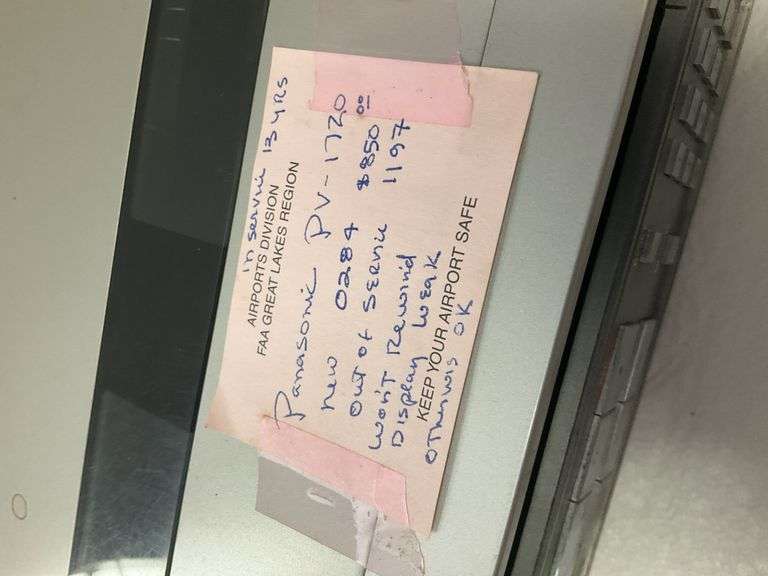 in service 13 YRS
AIRPORTS DIVISION
FAA GREAT LAKES REGION
Panasonic PV-1720
new 0284 $850.00
out of service 1197
won't Rewind
Display weak
KEEP YOUR AIRPORT SAFE
otherwis OK